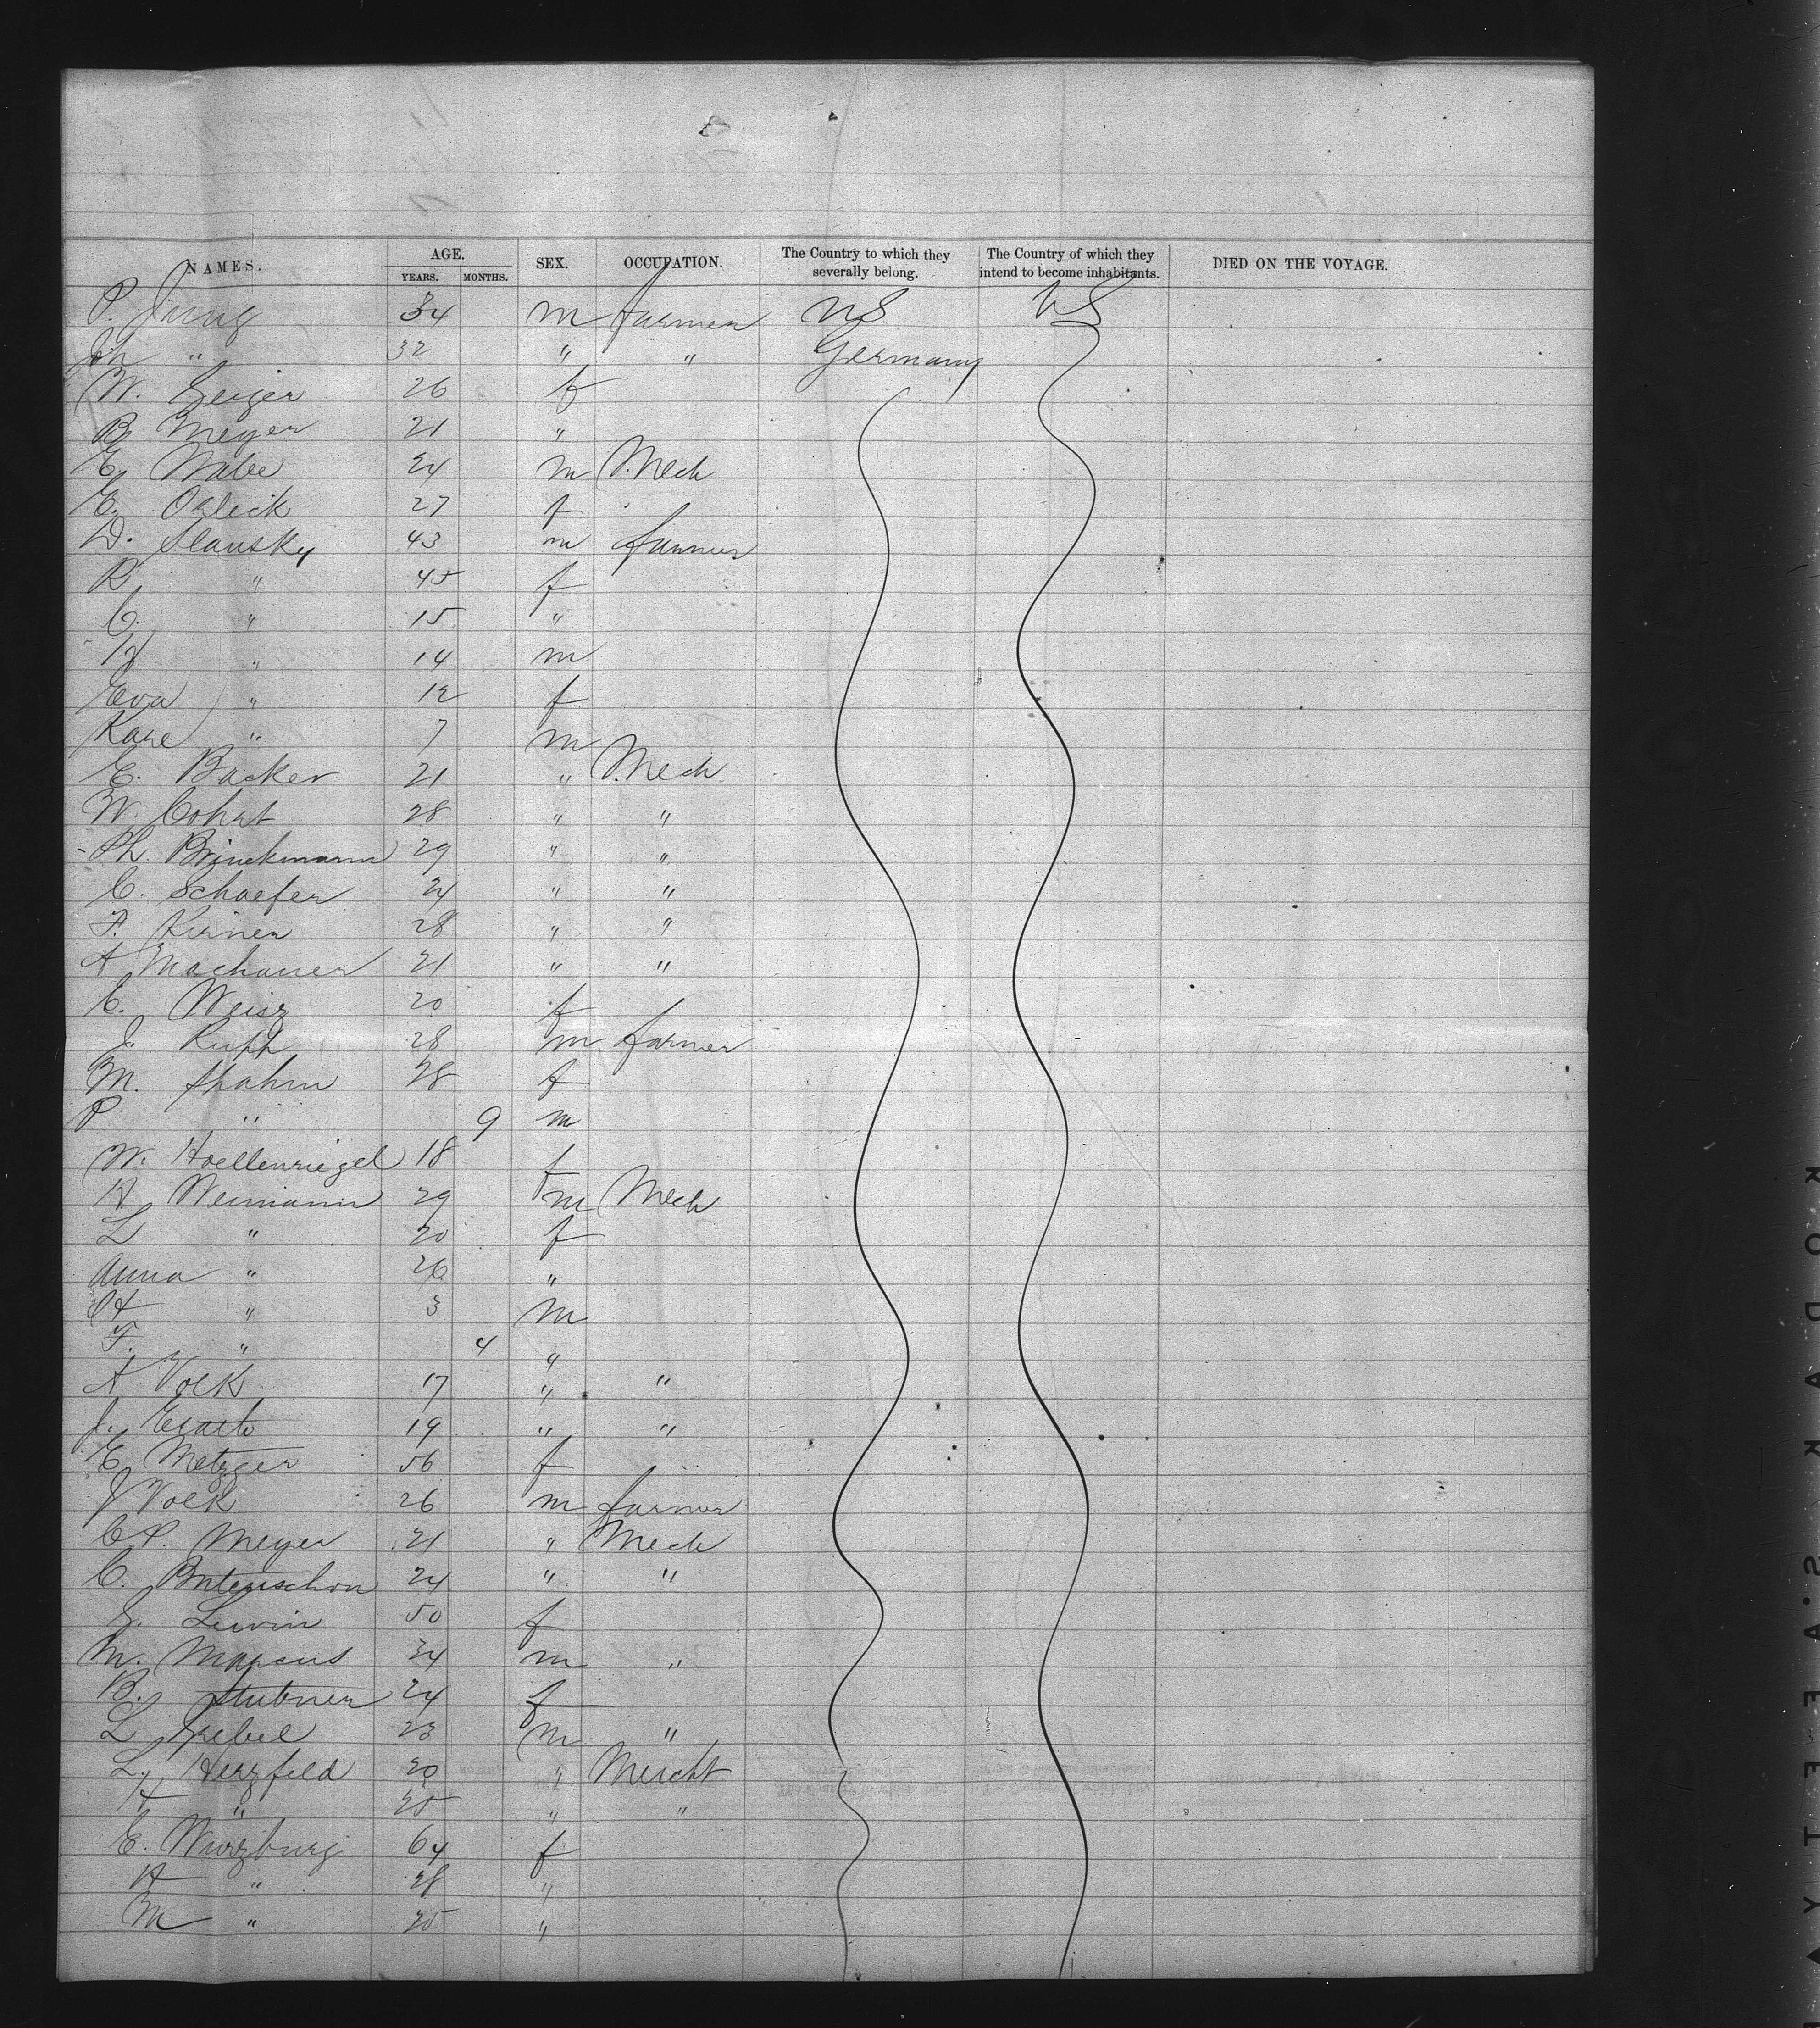 NAMES. AGE. YEARS. MONTHS. SEX. OCCUPATION. The Country to which they severally belong. The Country of which they intend to become inhabitants. DIED ON THE VOYAGE.
P. Jung 34 m farmer US US
Joh " 32 " " Germany
W. Geiger 26 f
B. Meyer 21 "
E. Nabe 24 m Mech
E. 27 f
D. Slansky 43 m farmer
R. " 45 f
C. " 15 "
H " 14 m
Eva " 12 f
Karl " 7 m
E. Backer 21 " Mech
W. Cohat 28 " "
Ph. Brinckmann 29 " "
C. Schaefer 24 " "
F. Kirner 28 " "
A Machauer 21 " "
C. Weisz 20 f
J. Rupp 28 m farmer
M. Spahin 28 f
P " 9 m
W. Hoellenriegel 18 f
H. Weimann 29 m Mech
L " 20 f
Anna " 26 "
" 3 m
F. " 4 "
A Volk 17 " "
J. 19 " "
E. Metzger 56 f
J Volk 26 m farmer
C P. Meyer 21 " Mech
C. Butenschon 24 " "
S. Lewin 50 f
M. Marcus 34 m "
B. Stubner 24 f
L 23 m "
L. Herzfeld 20 " Mercht
H " 25 " "
E. Wurzburg 64 f
H " 28 "
M " 25 "